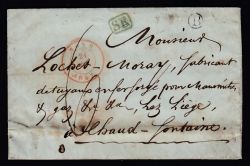 SR
Monsieur
Lochet - Moray, fabricant
de tuyaux en fer forgé pour
& gaz & &a, lez Liége,
à Chaud-fontaine.